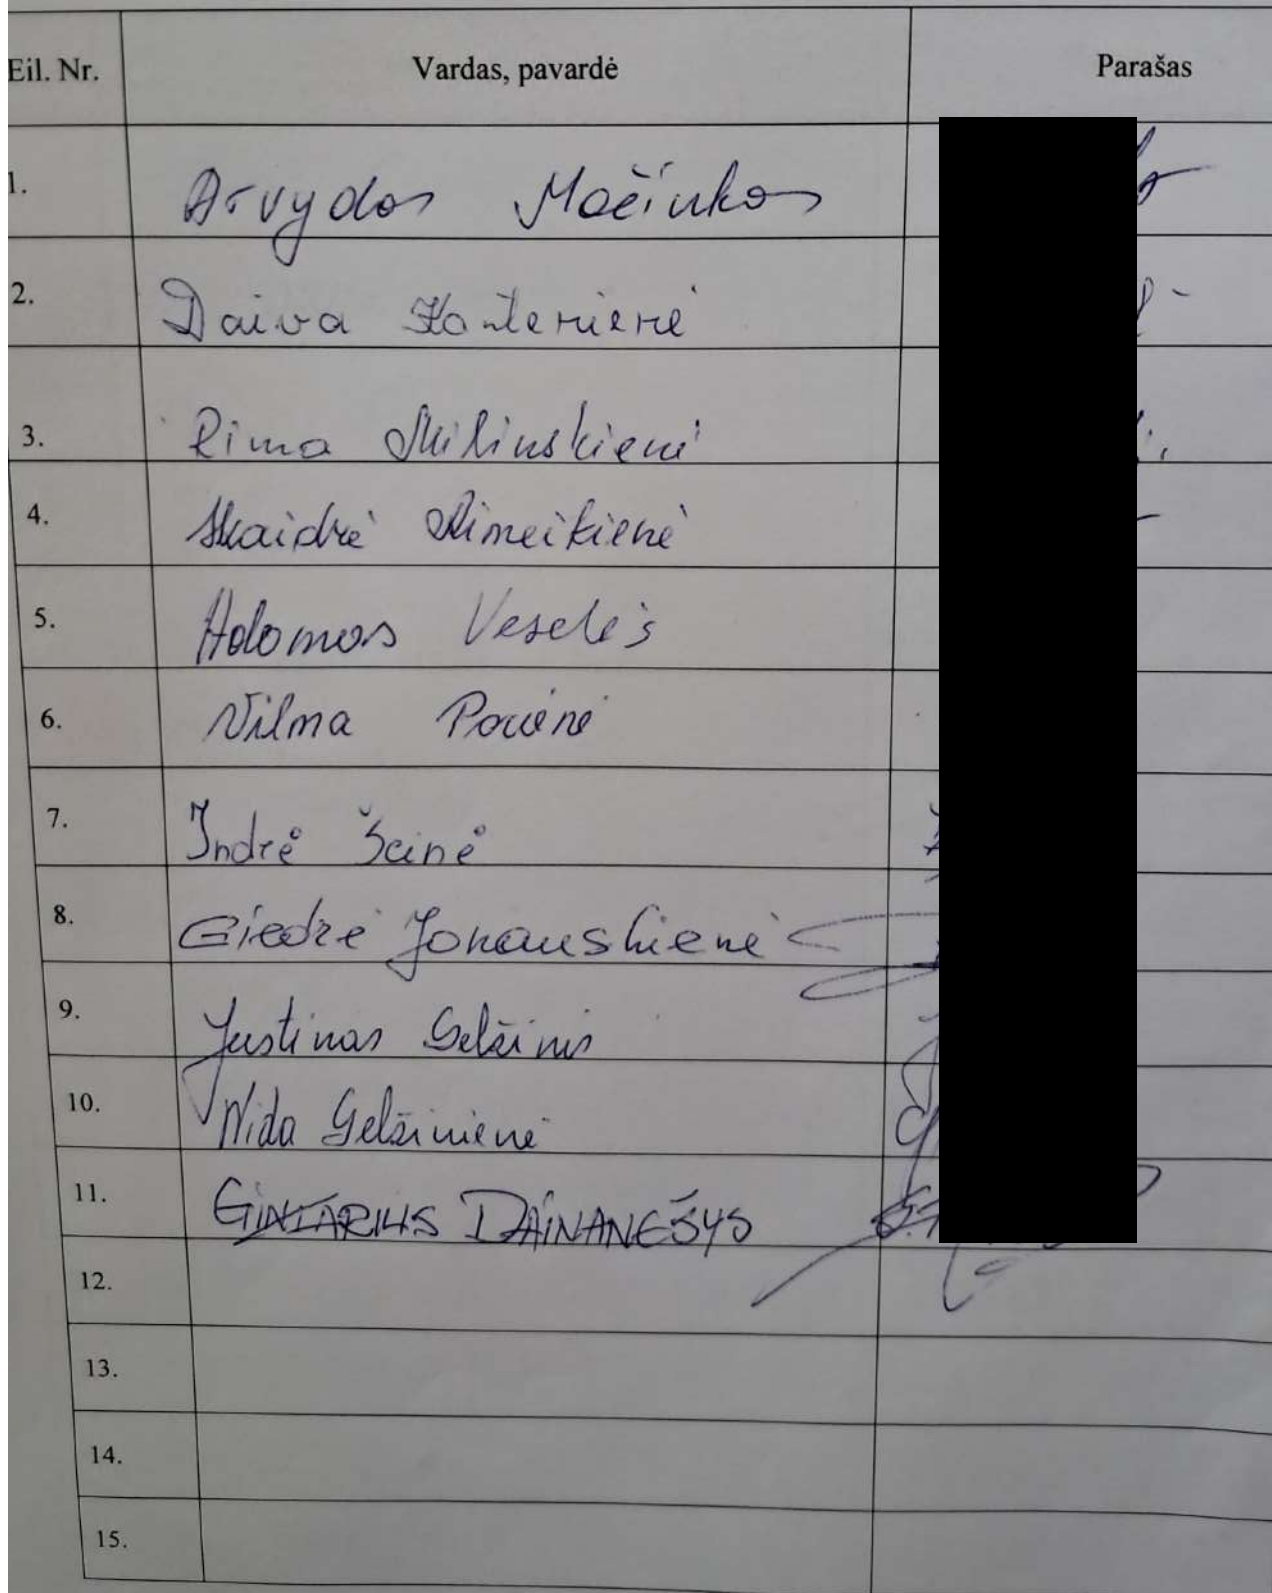 Eil. Nr. Vardas, pavardė Parašas
1. Arvydas Mačinkas
2. Daiva
3. Rima Milinskienė
4. Skaidrė Rimeikienė
5. Adomas Veselis
6. Vilma
7. Indrė Šeinė
8. Giedrė Jonauskienė
9. Justinas Gelžinis
10. Nida Gelžinienė
11. GINTARIUS DAINANEŠYS
12.
13.
14.
15.